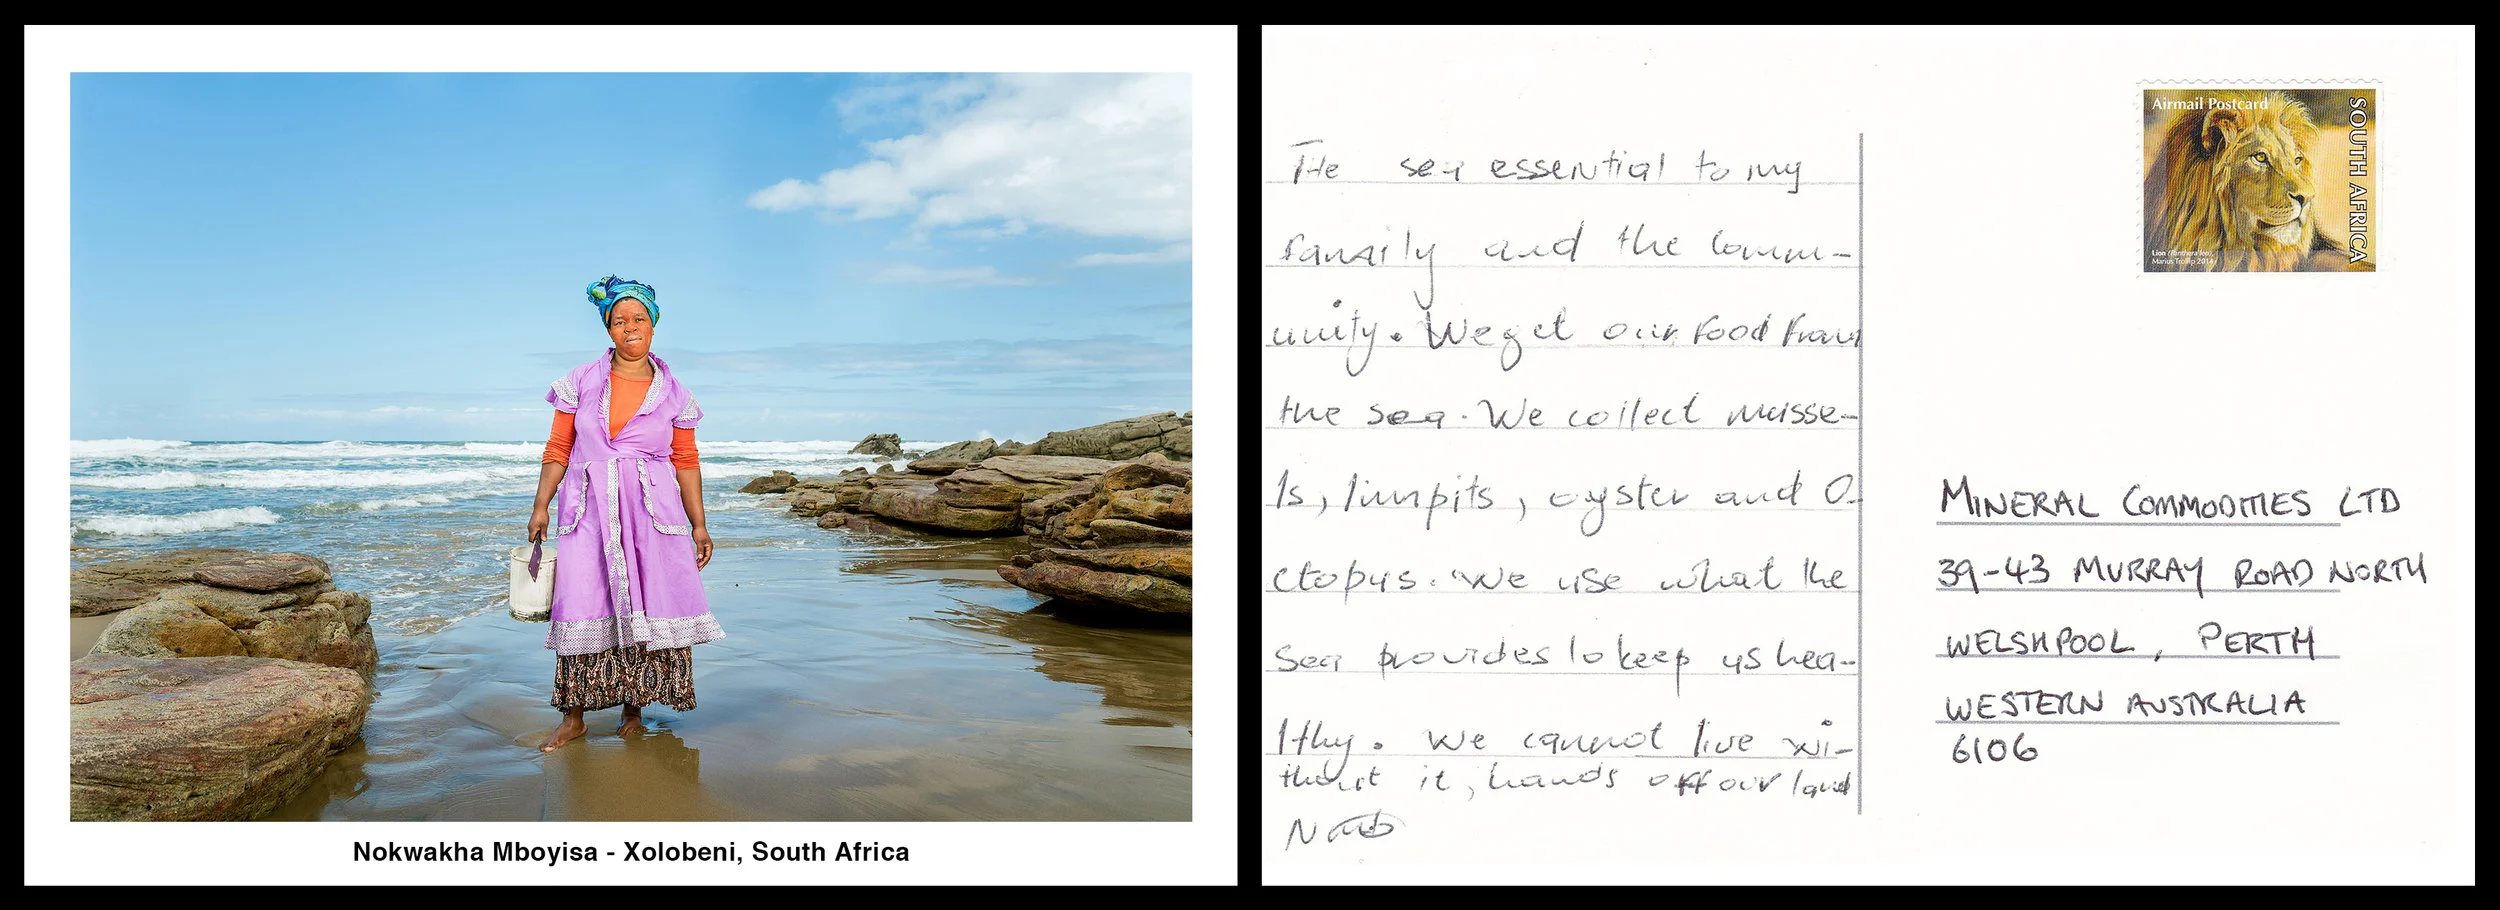 Nokwakha Mboyisa - Xolobeni, South Africa
The sea essential to my
family and the comm-
unity. We get our food from
the sea. We collect musse-
ls, limpits, oyster and O-
ctopus. We use what the
sea provides to keep us hea-
lthy. We cannot live wi-
thout it, hands off our land
Airmail Postcard
SOUTH AFRICA
Lion (Panthera leo),
Marius Trollip 2014
MINERAL COMMODITIES LTD
39-43 MURRAY ROAD NORTH
WELSHPOOL, PERTH
WESTERN AUSTRALIA
6106